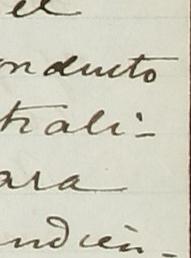 el
onducto
trali-
ara
ndien-